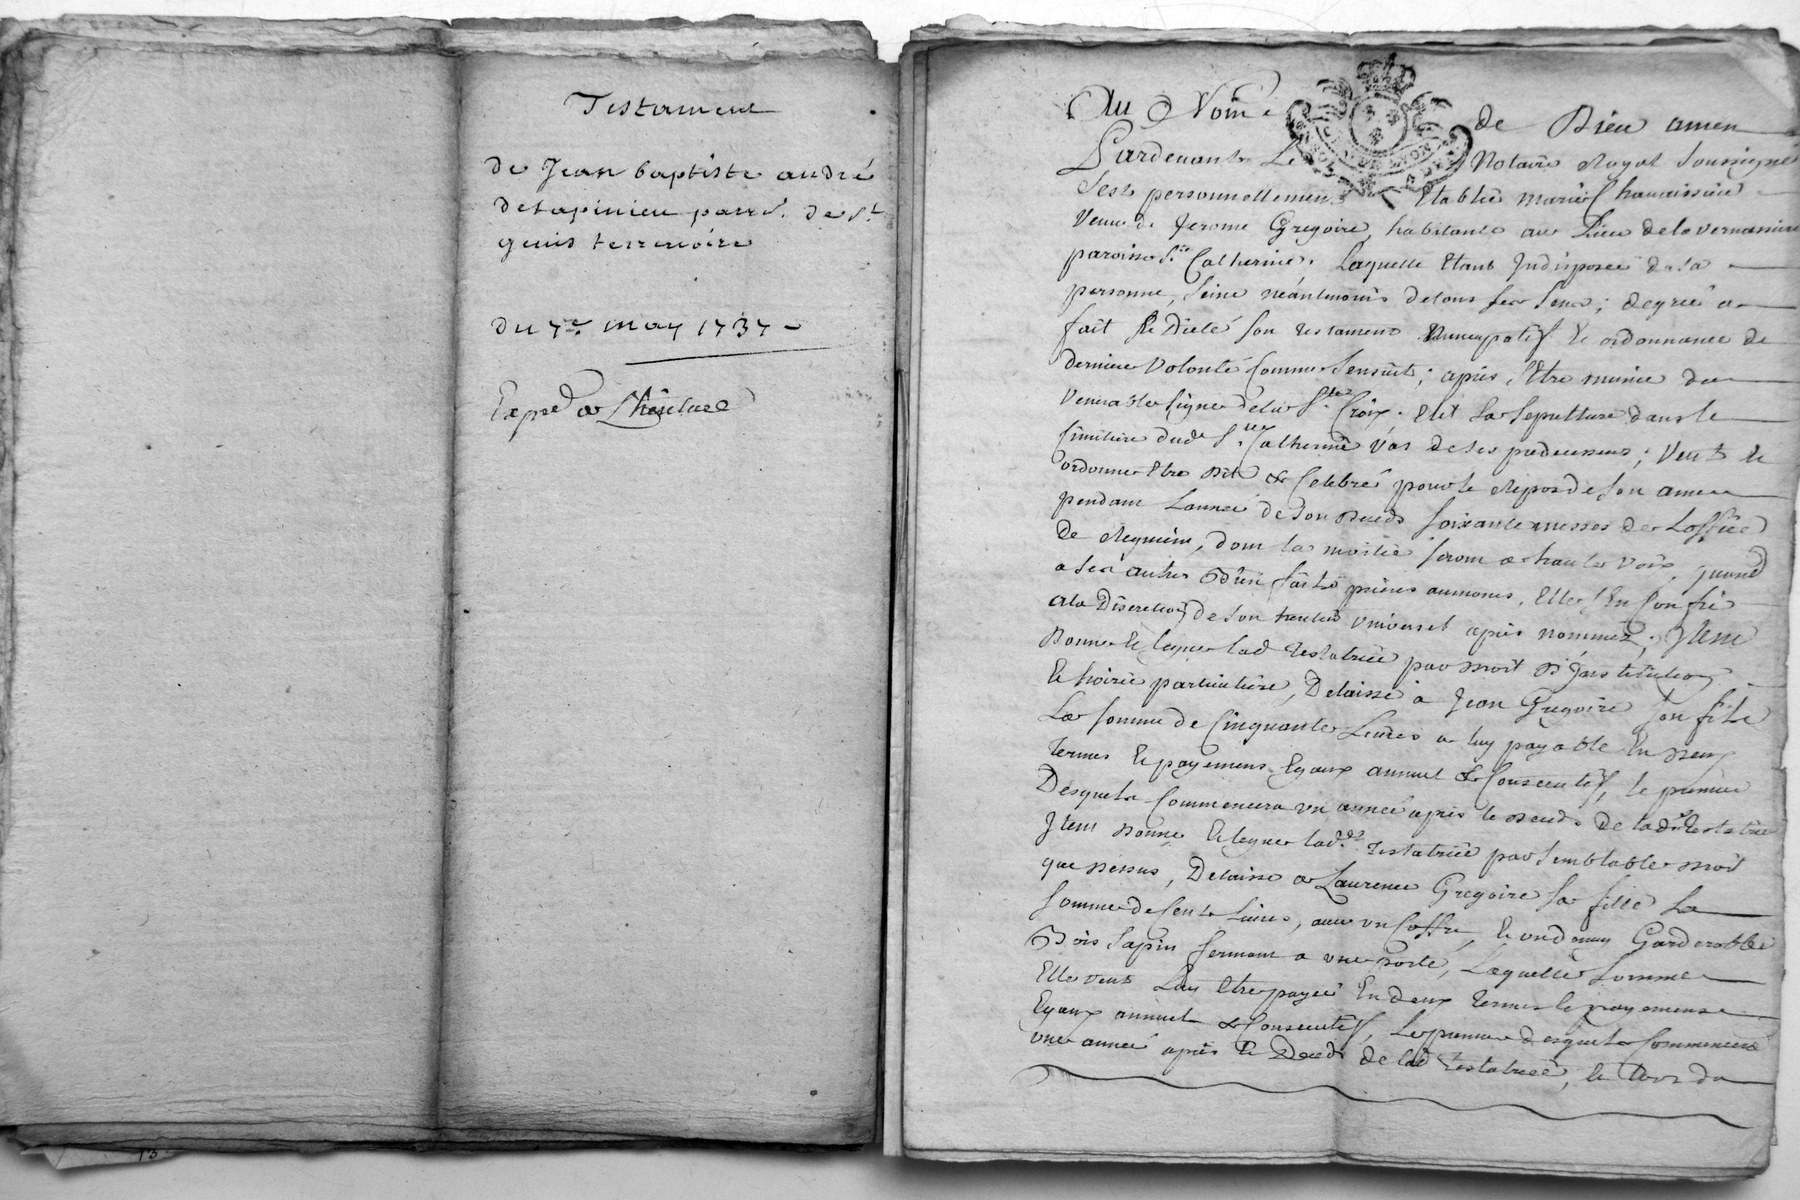 Testament
de Jean baptiste andré
de Lapinieu parr.e de St
genis terrenoire
du 7e may 1737
Exped a Lheritiere
Au Nom de Dieu amen
Pardevant Le Notaire Royal Soussigné
S'est personnellement Etablie marie Chavaissieu
Veuve de Jerome Gregoire, habitante au Lieu de la vernassiere
paroisse Ste Catherine. Laquelle Etant Indisposeé de sa
personne, Seine néantmoins de tous ses Sens; de gré a
fait & Dicté Son testament Nuncupatif & ordonnance de
derniere Volonté Comme Sensuit; apres S'etre munie du
Venerable Signe de la Ste Croix. Elit Sa Sepulture dans le
Cimitiere dud. Ste Catherine Vas de ses predecesseurs; Veut &
ordonne Etre dit & Celebré pour le Repos de Son ame
pendant L'année de Son Deceds Soixante messes de L'office
De Requiem, dont la moitié Seront a haute voix, quand
a Ses autres Bien faits prieres aumones, Elle S'En Confie
a la Discretion de Son heritier Universel après nommé; Item
Donne & legue lad. Testatrice par droit D'Institution
& hoirie particuliere, Delaisse à Jean Gregoire Son fils
La Somme de Cinquante Livres a luy payable En deux
termes & payemens Egaux annuel & Consecutifs, le premier
Desquels Commencera un année après le Deceds de lad. Testatrice
Item donne & legue lad. Testatrice par Semblable droit
que dessus, Delaisse a Laurence Gregoire Sa fille La
Somme de Cent Livres, avec un Coffre, & un Garderobbe
Bois Sapin fermant a une porte, Laquelle Somme
Elle veut Luy Etre payée En deux termes & payemens
Egaux annuel & Consecutifs, Le premier desquels Commencera
une année après le Deceds de lad. Testatrice, &